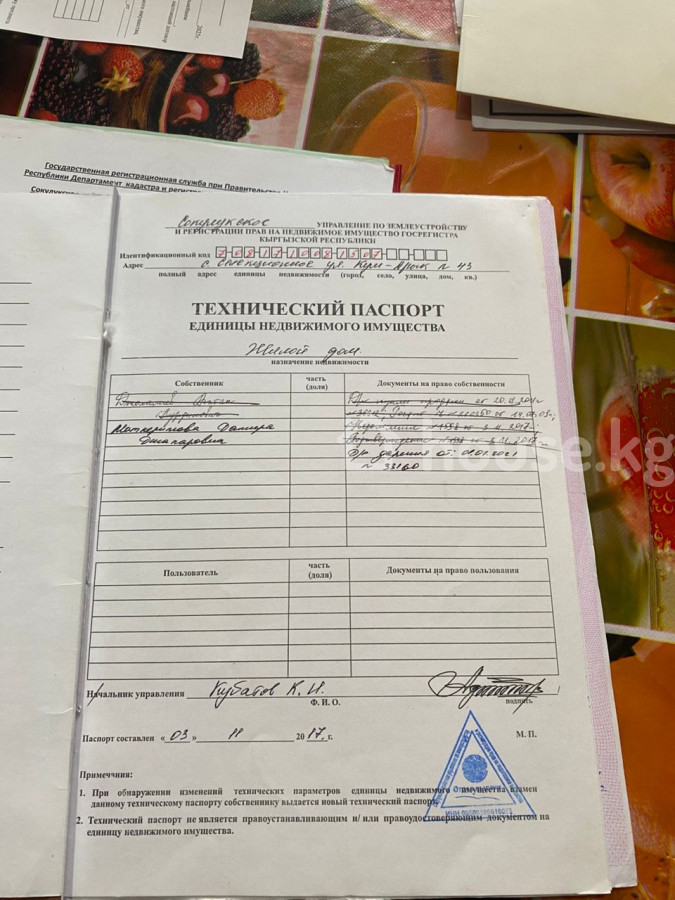 Государственная регистрационная служба при Правительстве
Республики Департамент кадастра и регистр
Сокулукское
Сокулукское УПРАВЛЕНИЕ ПО ЗЕМЛЕУСТРОЙСТВУ
И РЕГИСТРАЦИИ ПРАВ НА НЕДВИЖИМОЕ ИМУЩЕСТВО ГОСРЕГИСТРА
КЫРГЫЗСКОЙ РЕСПУБЛИКИ
Идентификационный код 7-08-17-1008-1507
Адрес с. Селекционное ул. Кара-Арык № 43
полный адрес единицы недвижимости (город, село, улица, дом, кв.)
ТЕХНИЧЕСКИЙ ПАСПОРТ
ЕДИНИЦЫ НЕДВИЖИМОГО ИМУЩЕСТВА
Жилой дом.
назначение недвижимости
Собственник часть (доля) Документы на право собственности
Дамира
Джапаровна
№1558 от 3.11.2017г
Др дарения от: 01.2021
№ 33160
house.kg
Пользователь часть (доля) Документы на право пользования
Начальник управления Кубатов К. И.
Ф. И. О. подпись
Паспорт составлен «03» 11 2017 г. М. П.
Примечания:
1. При обнаружении изменений технических параметров единицы недвижимого имущества взамен
данному техническому паспорту собственнику выдается новый технический паспорт.
2. Технический паспорт не является правоустанавливающим и/ или правоудостоверяющим документом на
единицу недвижимого имущества.